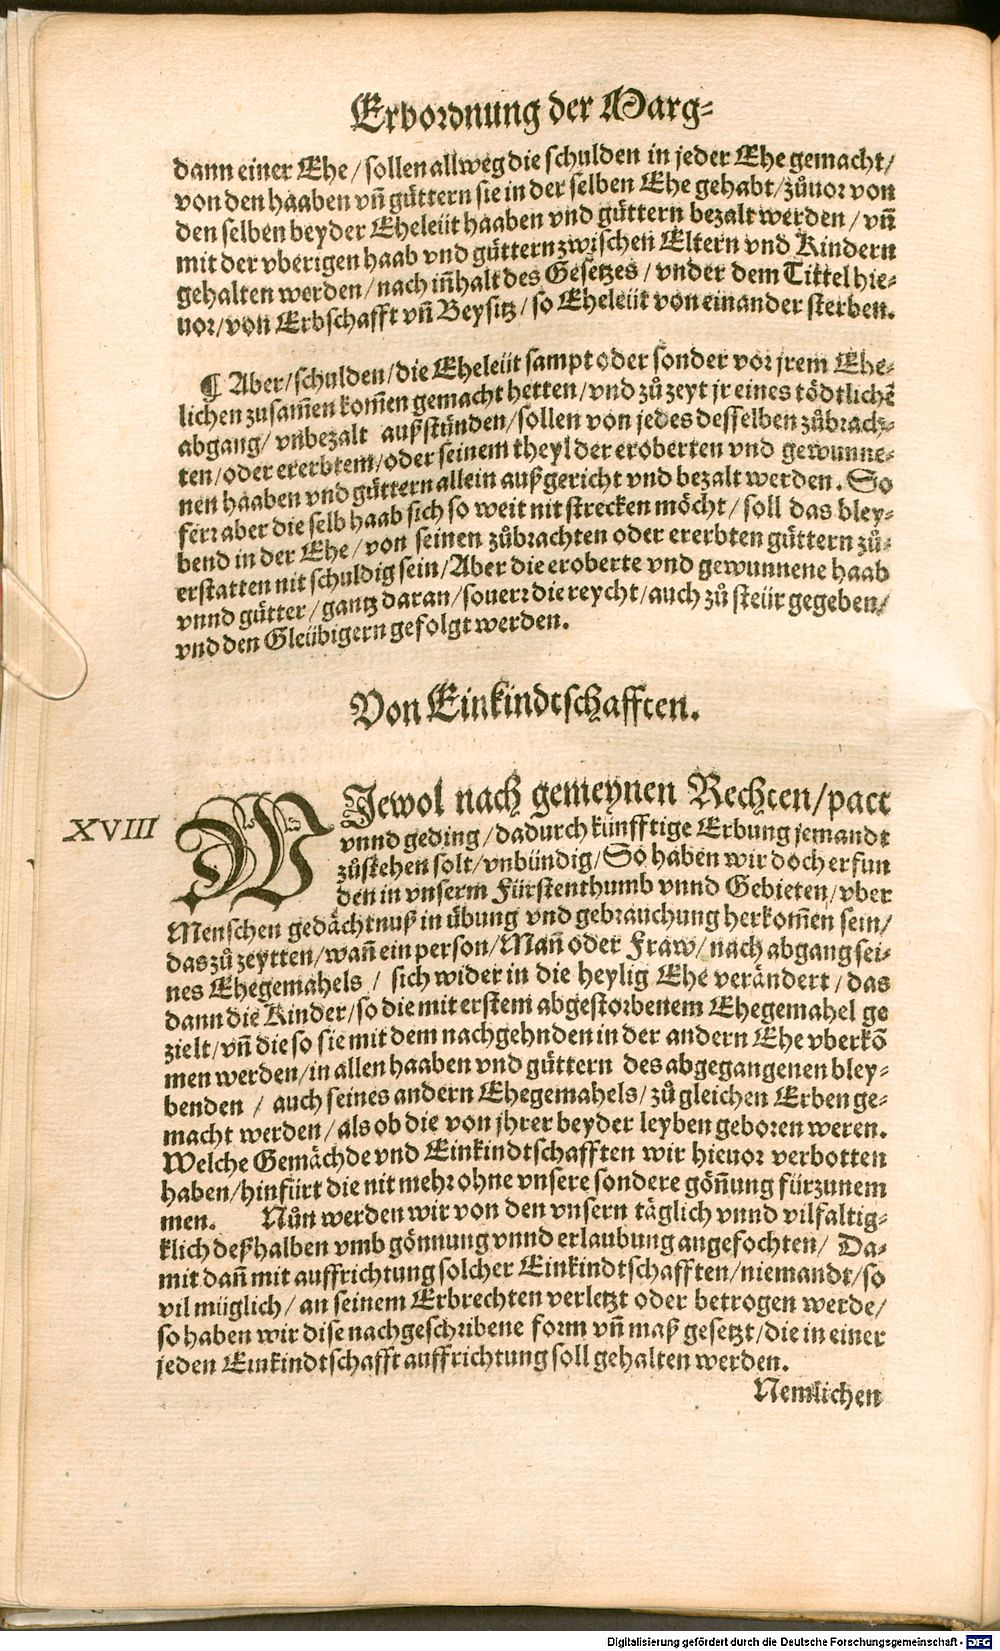 Erbordnung der Marg-
dann einer Ehe / sollen allweg die schulden in jeder Ehe gemacht/
von den haaben vn̄ güttern sie in der selben Ehe gehabt/ zůuor von
den selben beyder Eheleüt haaben vnd güttern bezalt werden / vn̄
mit der vberigen haab vnd güttern zwischen Eltern vnd Kindern
gehalten werden/ nach in̄halt des Gesetzes / vnder dem Tittel hie-
uor/ von Erbschafft vn̄ Beysitz/ so Eheleüt von einander sterben.
¶ Aber/ schulden/ die Eheleüt sampt oder sonder vor jrem Ehe-
lichen zusam̄en kom̄en gemacht hetten/ vnd zů zeyt jr eines tödtlichē
abgang/ vnbezalt außstünden/ sollen von jedes desselben zůbrach-
ten/ oder ererbtem/ oder seinem theyl der eroberten vnd gewunne-
nen haaben vnd güttern allein außgericht vnd bezalt werden. So
ferr aber die selb haab sich so weit nit strecken möcht/ soll das bley-
bend in der Ehe/ von seinen zůbrachten oder ererbten güttern zů-
erstatten nit schuldig sein/ Aber die eroberte vnd gewunnene haab
vnnd gütter/ gantz daran/ souerr die reycht/ auch zů steür gegeben/
vnd den Gleübigern gefolgt werden.
Von Einkindtschafften.
XVIII
WJewol nach gemeynen Rechten/ pact
vnnd geding/ dadurch künfftige Erbung jemandt
zůstehen solt/ vnbündig/ So haben wir doch erfun
den in vnserm Fürstenthumb vnnd Gebieten/ vber
Menschen gedächtnuß in übung vnd gebrauchung herkom̄en sein/
das zů zeytten/ wan̄ ein person/ Man̄ oder Fraw/ nach abgang sei-
nes Ehegemahels / sich wider in die heylig Ehe verändert / das
dann die Kinder/ so die mit erstem abgestorbenem Ehegemahel ge
zielt/ vn̄ die so sie mit dem nachgehnden in der andern Ehe vberkō
men werden/ in allen haaben vnd güttern des abgegangenen bley-
benden / auch seines andern Ehegemahels/ zů gleichen Erben ge-
macht werden/ als ob die von jhrer beyder leyben geboren weren.
Welche Gemächde vnd Einkindtschafften wir hieuor verbotten
haben/ hinfürt die nit mehr ohne vnsere sondere gön̄ung fürzunem
men. Nůn werden wir von den vnsern täglich vnnd vilfaltig-
klich deßhalben vmb gönnung vnnd erlaubung angefochten/ Da-
mit dan̄ mit auffrichtung solcher Einkindtschafften/ niemandt/ so
vil müglich/ an seinem Erbrechten verletzt oder betrogen werde/
so haben wir dise nachgeschribene form vn̄ maß gesetzt/ die in einer
jeden Einkindtschafft auffrichtung soll gehalten werden.
Nemlichen
Digitalisierung gefördert durch die Deutsche Forschungsgemeinschaft - DFG